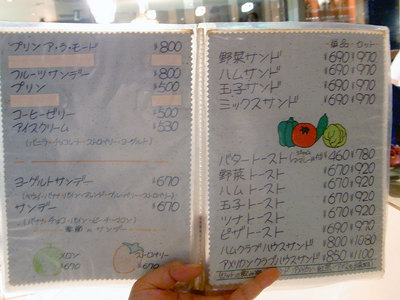 プリン ア・ラ・モード ¥800
フルーツサンデー ¥800
プリン ¥500
コーヒーゼリー ¥500
アイスクリーム ¥530
(バニラ・チョコレート・ストロベリー・ヨーグルト)
ヨーグルトサンデー ¥670
サンデー ¥670
季節のサンデー
メロン
¥670
ストロベリー
¥670
単品・セット
野菜サンド ¥690 ¥970
ハムサンド ¥690 ¥970
玉子サンド ¥690 ¥970
ミックスサンド ¥690 ¥970
バタートースト ¥460 ¥780
野菜トースト ¥670 ¥920
ハムトースト ¥670 ¥920
玉子トースト ¥670 ¥920
ツナトースト ¥670 ¥920
ピザトースト ¥670 ¥920
ハムクラブハウスサンド ¥800 ¥1080
アメリカンクラブハウスサンド ¥850 ¥1100